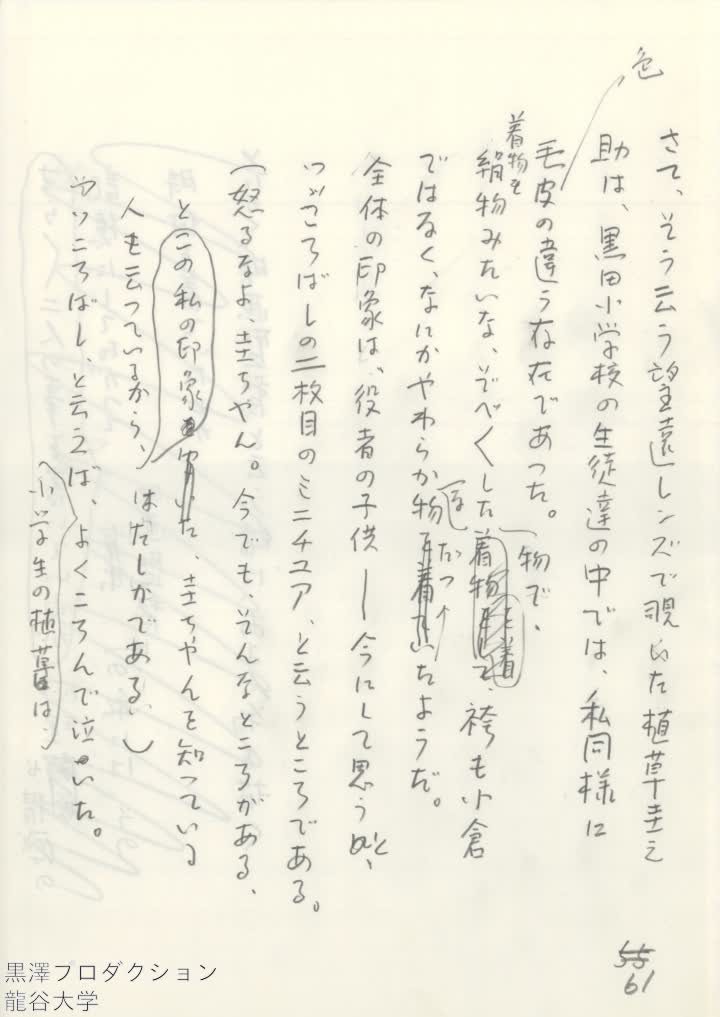 さて、そう云う望遠レンズで覗いた植草圭之
助は、黒田小学校の生徒達の中では、私同様に
色
毛皮の違う存在であった。
着物を
絹物みたいな、ぞべぞべした着物を着て、袴も小倉
物で、
ではなく、なにかやわらか物を着ていたようだ。
な
だった
全体の印象は、役者の子供──今にして思うと、
つっころばしの二枚目のミニチュア、と云うところである。
(怒るなよ、圭ちゃん。今でも、そんなところがある、
とこの私の印象は、圭ちゃんを知っている
人も云っているから、はたしかである。)
つっころばし、と云えば、よくころんで泣いた。
小学生の植草は、
55
61
黒澤プロダクション
龍谷大学